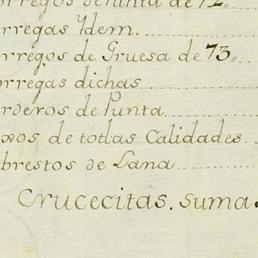 orregos de Punta de 72,,
orregas Ydem.
orregos de Gruesa de 73,,
orregas dichas
orderos de Punta
exos de totlas Calidades
brestos de Lana
Crucecitas. suma